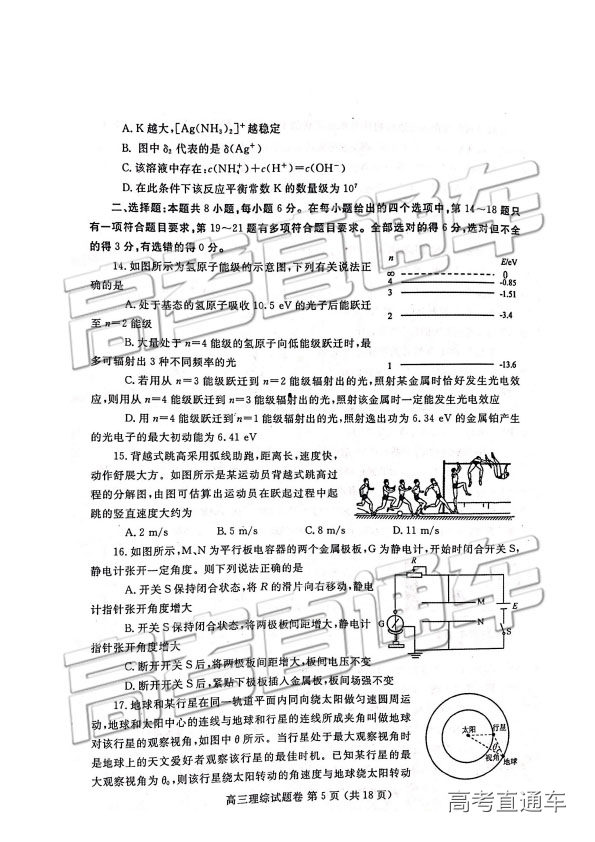 A. K 越大,[Ag(NH₃)₂]⁺越稳定
B. 图中 δ₂ 代表的是 δ(Ag⁺)
C. 该溶液中存在:c(NH₄⁺)+c(H⁺)=c(OH⁻)
D. 在此条件下该反应平衡常数 K 的数量级为 10⁷
二、选择题:本题共 8 小题,每小题 6 分。在每小题给出的四个选项中,第 14～18 题只
有一项符合题目要求,第 19～21 题有多项符合题目要求。全部选对的得 6 分,选对但不全
的得 3 分,有选错的得 0 分。
14. 如图所示为氢原子能级的示意图,下列有关说法正
确的是
A. 处于基态的氢原子吸收 10.5 eV 的光子后能跃迁
至 n=2 能级
B. 大量处于 n=4 能级的氢原子向低能级跃迁时,最
多可辐射出 3 种不同频率的光
n E/eV
∞ 0
4 -0.85
3 -1.51
2 -3.4
1 -13.6
C. 若用从 n=3 能级跃迁到 n=2 能级辐射出的光,照射某金属时恰好发生光电效
应,则用从 n=4 能级跃迁到 n=3 能级辐射出的光,照射该金属时一定能发生光电效应
D. 用 n=4 能级跃迁到 n=1 能级辐射出的光,照射逸出功为 6.34 eV 的金属铂产生
的光电子的最大初动能为 6.41 eV
15. 背越式跳高采用弧线助跑,距离长,速度快,
动作舒展大方。如图所示是某运动员背越式跳高过
程的分解图,由图可估算出运动员在跃起过程中起
跳的竖直速度大约为
A. 2 m/s B. 5 m/s C. 8 m/s D. 11 m/s
16. 如图所示,M、N 为平行板电容器的两个金属极板,G 为静电计,开始时闭合开关 S,
静电计张开一定角度。则下列说法正确的是
A. 开关 S 保持闭合状态,将 R 的滑片向右移动,静电
计指针张开角度增大
B. 开关 S 保持闭合状态,将两极板间距增大,静电计
指针张开角度增大
C. 断开开关 S 后,将两极板间距增大,板间电压不变
D. 断开开关 S 后,紧贴下极板插入金属板,板间场强不变
R
M
E
G
N
S
17. 地球和某行星在同一轨道平面内同向绕太阳做匀速圆周运
动,地球和太阳中心的连线与地球和行星的连线所成夹角叫做地球
对该行星的观察视角,如图中 θ 所示。当行星处于最大观察视角时
是地球上的天文爱好者观察该行星的最佳时机。已知某行星的最
大观察视角为 θ₀,则该行星绕太阳转动的角速度与地球绕太阳转动
太阳 行星
θ
视角 地球
高三理综试题卷 第 5 页(共 18 页)
高考直通车
高考直通车
高考直通车